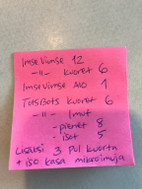 ImseVimse 12
-"- kuoret 6
ImseVimse AIO 1
TotsBots kuoret 6
-"- Imut
-pienet 8
-isot 5
Lisäksi 3 Pul kuorta
+ iso kasa mikroimuja